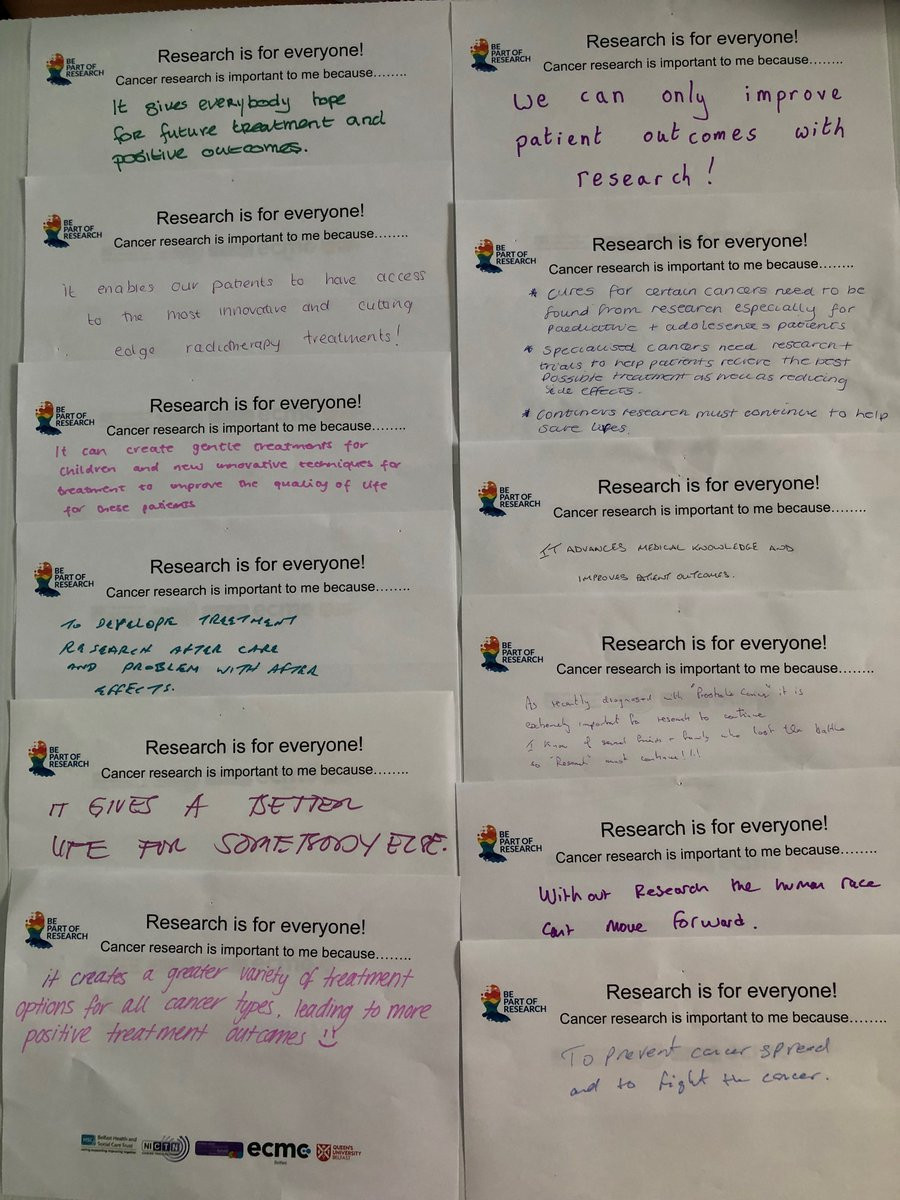 BE
PART OF
RESEARCH
Research is for everyone!
Cancer research is important to me because........
It gives everybody hope
for future treatment and
positive outcomes.
BE
PART OF
RESEARCH
Research is for everyone!
Cancer research is important to me because........
it enables our patients to have access
to the most innovative and cutting
edge radiotherapy treatments!
BE
PART OF
RESEARCH
Research is for everyone!
Cancer research is important to me because........
It can create gentle treatments for
children and new innovative techniques for
treatment to improve the quality of life
for these patients
BE
PART OF
RESEARCH
Research is for everyone!
Cancer research is important to me because........
TO DEVELOPE TREETMENT
RESEARCH AFTER CARE
AND PROBLEM WITH AFTER
EFFECTS.
BE
PART OF
RESEARCH
Research is for everyone!
Cancer research is important to me because........
IT GIVES A BETTER
LIFE FOR SOMEBODY ELSE.
BE
PART OF
RESEARCH
Research is for everyone!
Cancer research is important to me because........
it creates a greater variety of treatment
options for all cancer types, leading to more
positive treatment outcomes
HSC Belfast Health and
Social Care Trust
NICTN
ecmc
Belfast
QUEEN'S
UNIVERSITY
BELFAST
BE
PART OF
RESEARCH
Research is for everyone!
Cancer research is important to me because........
We can only improve
patient outcomes with
research!
BE
PART OF
RESEARCH
Research is for everyone!
Cancer research is important to me because........
* Cures for certain cancers need to be
found from research especially for
paediatric + adolesense patients
* Specialised cancers need research +
trials to help patients recieve the best
possible treatment as well as reducing
side effects.
* Continers research must continue to help
save lives.
BE
PART OF
RESEARCH
Research is for everyone!
Cancer research is important to me because........
IT ADVANCES MEDICAL KNOWLEDGE AND
IMPROVES PATIENT OUTCOMES.
BE
PART OF
RESEARCH
Research is for everyone!
Cancer research is important to me because........
As recently diagnosed with "Prostate Cancer" it is
extremely important for research to continue
I know of several friends + family who lost the battle
so "Research" must continue!!!
BE
PART OF
RESEARCH
Research is for everyone!
Cancer research is important to me because........
Without Research the human race
cant move forward.
BE
PART OF
RESEARCH
Research is for everyone!
Cancer research is important to me because........
To prevent cancer spread
and to fight the cancer.